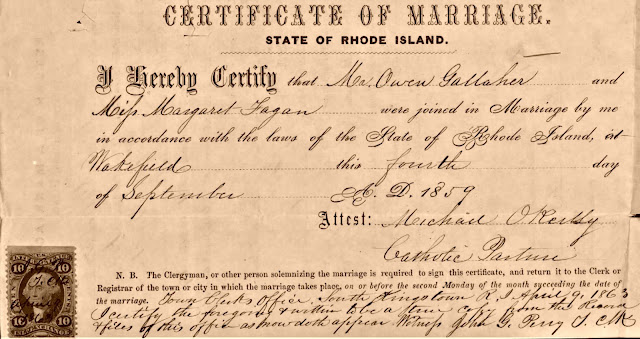 CERTIFICATE OF MARRIAGE.
STATE OF RHODE ISLAND.
I Hereby Certify that Mr. Owen Gallaher and
Miss Margaret Fagan were joined in Marriage by me
in accordance with the laws of the State of Rhode Island, in
Wakefield this fourth day
of September A. D. 1859
Attest: Michael O'Reilly
Catholic Pastor
N. B. The Clergyman, or other person solemnizing the marriage is required to sign this certificate, and return it to the Clerk or
Registrar of the town or city in which the marriage takes place, on or before the second Monday of the month succeeding the date of
the marriage. Town Clerks Office, South Kingstown R. I April 9, 1863
I certify the foregoing & within to be a true copy from the Record
& files of this office as now doth appear Witness John G. Perry T. Clk
10 10
INTER. EXCHANGE
10 10